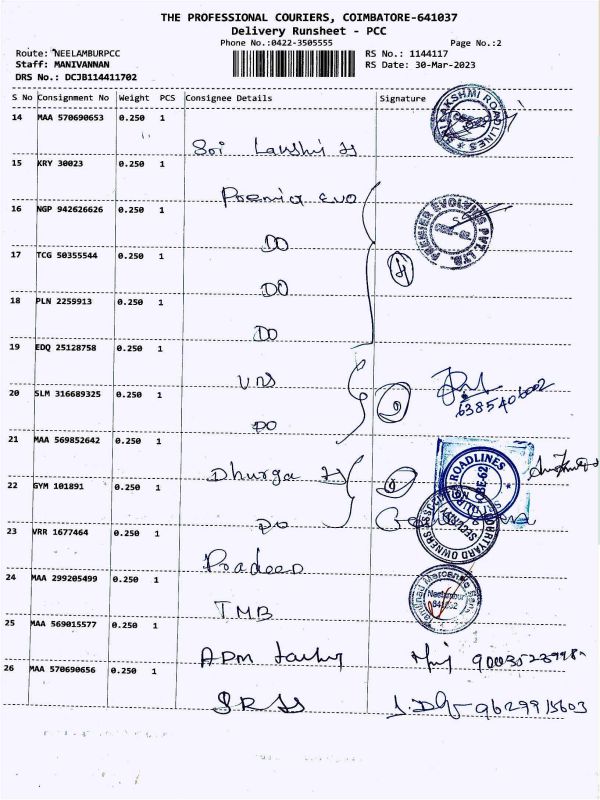 THE PROFESSIONAL COURIERS, COIMBATORE-641037
Delivery Runsheet - PCC
Phone No.:0422-3505555 Page No.:2
Route: NEELAMBURPCC RS No.: 1144117
Staff: MANIVANNAN RS Date: 30-Mar-2023
DRS No.: DCJB114411702
S No Consignment No Weight PCS Consignee Details Signature
14 MAA 570690653 0.250 1
SRI LAKSHMI ROADLINES
15 KRY 30023 0.250 1
Premier Evo
16 NGP 942626626 0.250 1
PREMIER EVOLVING PVT. LTD.
DO
17 TCG 50355544 0.250 1
DO
4
18 PLN 2259913 0.250 1
DO
19 EDQ 25128758 0.250 1
VRS
20 SLM 316689325 0.250 1
DO
21 MAA 569852642 0.250 1
Dhurga
ROADLINES
CBE-62
22 GYM 101891 0.250 1
DO
COURTYARD OWNERS
SECURITY
23 VRR 1677464 0.250 1
Pradeep
24 MAA 299205499 0.250 1
TMB
Tamilnad Mercantile Bank
Neelambur
641062
25 MAA 569015577 0.250 1
26 MAA 570690656 0.250 1
9629915603